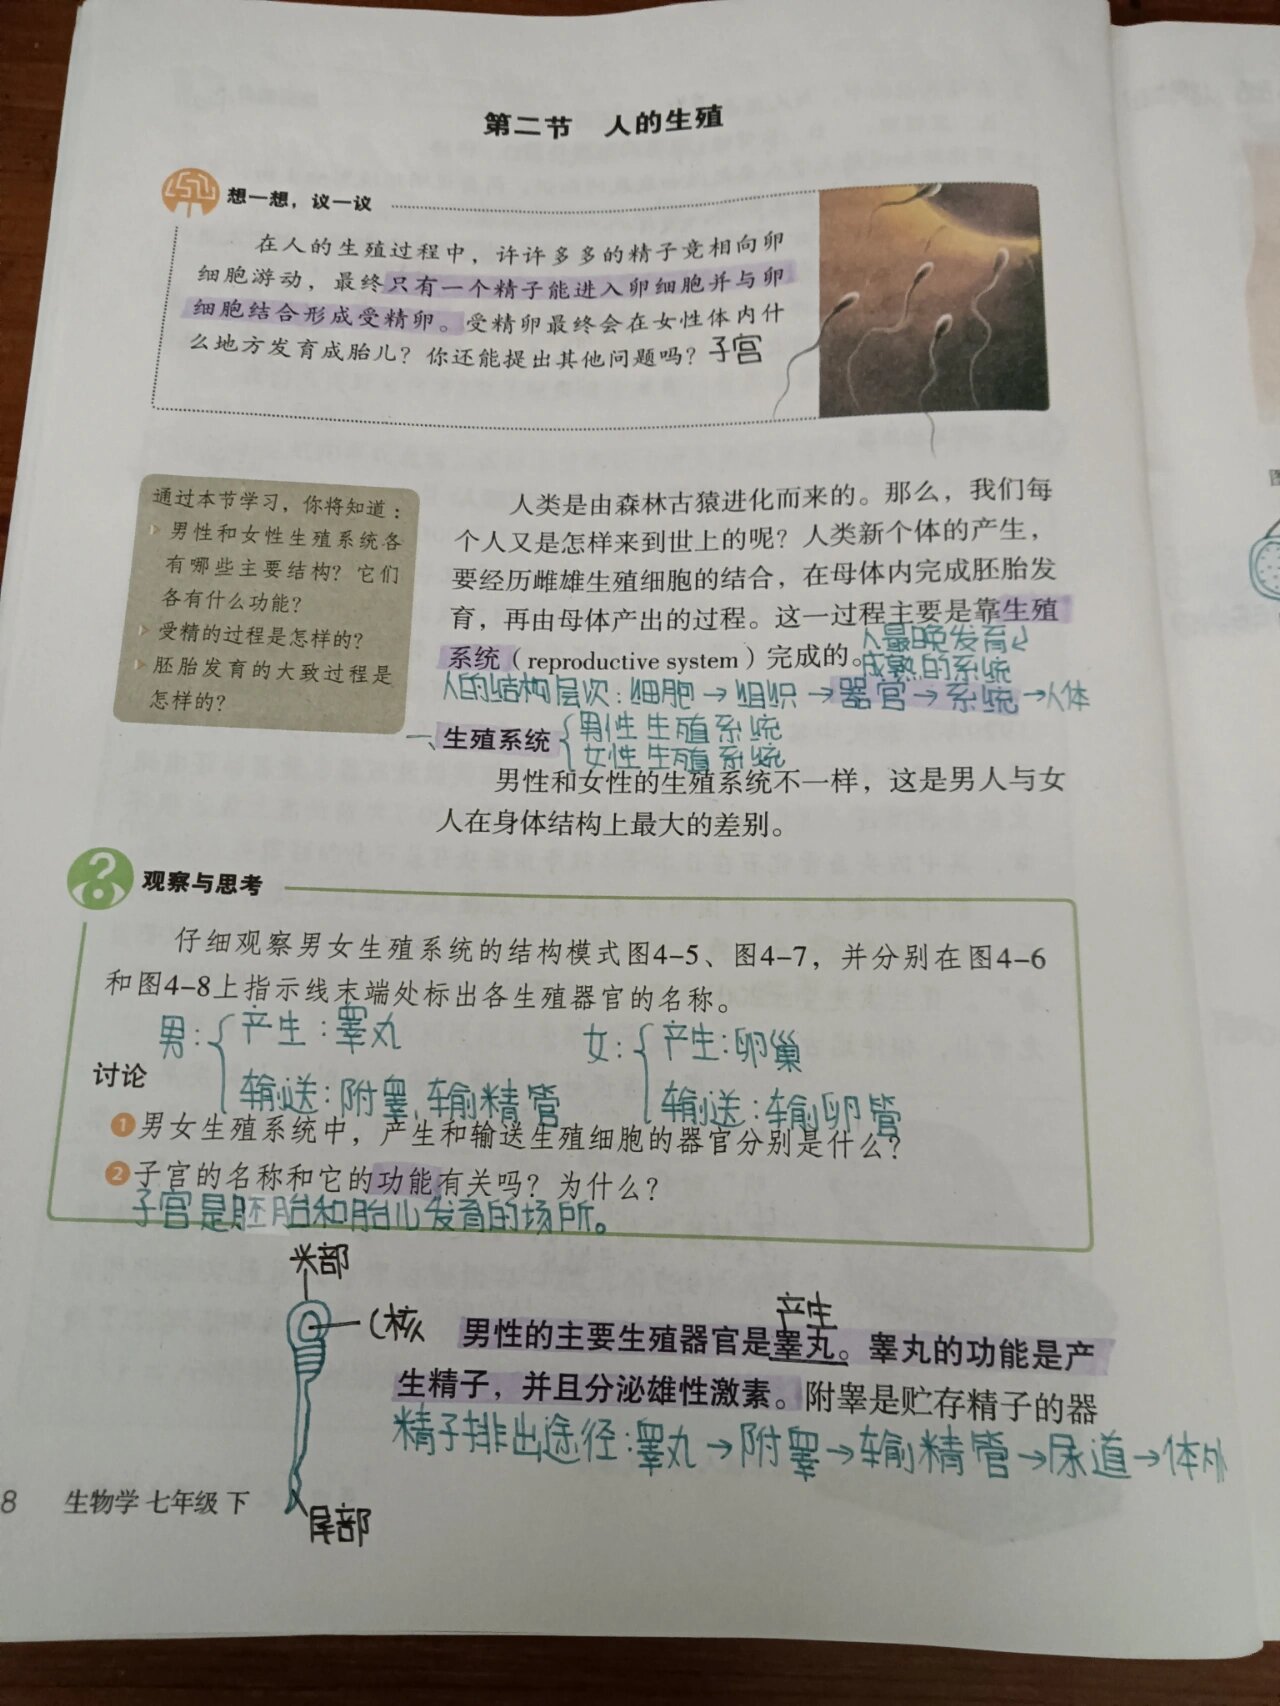 第二节 人的生殖
想一想，议一议
在人的生殖过程中，许许多多的精子竞相向卵
细胞游动，最终只有一个精子能进入卵细胞并与卵
细胞结合形成受精卵。受精卵最终会在女性体内什
么地方发育成胎儿？你还能提出其他问题吗？子宫
通过本节学习，你将知道：
男性和女性生殖系统各
有哪些主要结构？它们
各有什么功能？
受精的过程是怎样的？
胚胎发育的大致过程是
怎样的？
人类是由森林古猿进化而来的。那么，我们每
个人又是怎样来到世上的呢？人类新个体的产生，
要经历雌雄生殖细胞的结合，在母体内完成胚胎发
育，再由母体产出的过程。这一过程主要是靠生殖
系统（reproductive system）完成的。
人最晚发育
成熟的系统
人的结构层次：细胞→组织→器官→系统→人体
一、生殖系统
男性生殖系统
女性生殖系统
男性和女性的生殖系统不一样，这是男人与女
人在身体结构上最大的差别。
观察与思考
仔细观察男女生殖系统的结构模式图4-5、图4-7，并分别在图4-6
和图4-8上指示线末端处标出各生殖器官的名称。
男：产生：睾丸
输送：附睾、输精管
女：产生：卵巢
输送：输卵管
讨论
1 男女生殖系统中，产生和输送生殖细胞的器官分别是什么？
2 子宫的名称和它的功能有关吗？为什么？
子宫是胚胎和胎儿发育的场所。
头部
核
尾部
产生
男性的主要生殖器官是睾丸。睾丸的功能是产
生精子，并且分泌雄性激素。附睾是贮存精子的器
精子排出途径：睾丸→附睾→输精管→尿道→体外
8 生物学 七年级 下